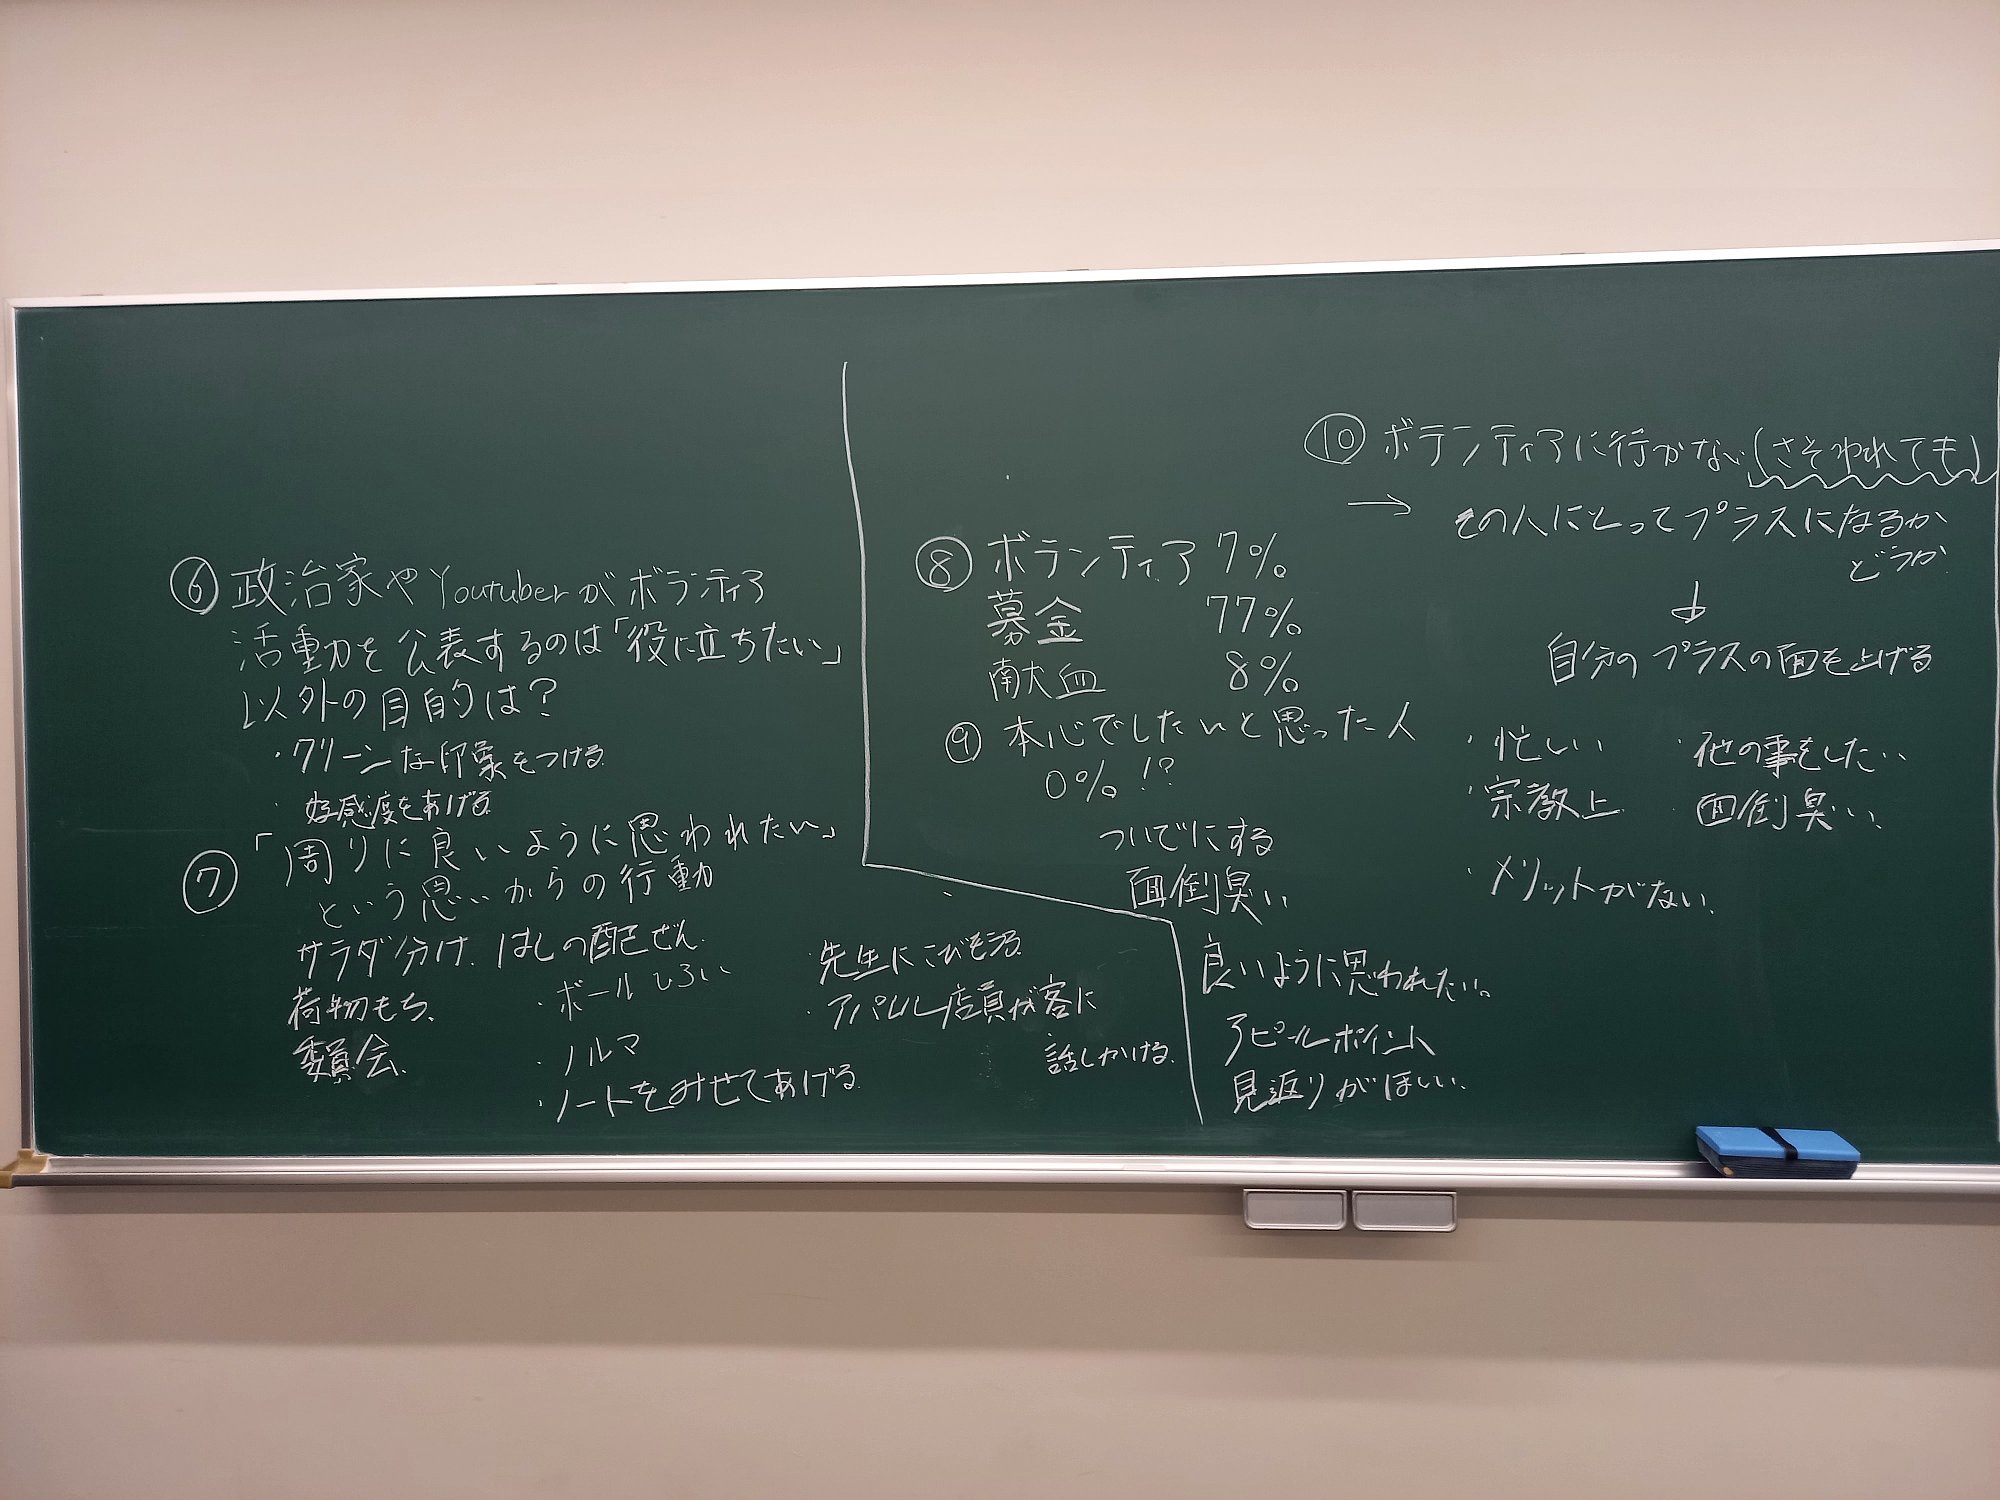 ⑥ 政治家やYoutuberがボランティア
活動力を公表するのは「役に立ちたい」
以外の目的は？
・クリーンな印象をつける
・好感度をあげる
⑦ 「周りに良いように思われたい」
という思いからの行動
サラダ分け、はしの配ぜん
荷物もち、
委員会、
・ボールひろい
・ノルマ
・ノートをみせてあげる
・先生にこびをうる
・アパレル店員が客に
話しかける
⑧ ボランティア 7%
募金 77%
献血 8%
⑨ 本心でしたいと思った人
0%！？
ついでにする
面倒臭い
良いように思われたい。
アピールポイント
見返りがほしい
⑩ ボランティアに行かない(さそわれても)
→ その人にとってプラスになるか
どうか
↓
自分のプラスの面を上げる
・忙しい
・宗教上
・メリットがない、
・他の事をしたい
・面倒臭い、